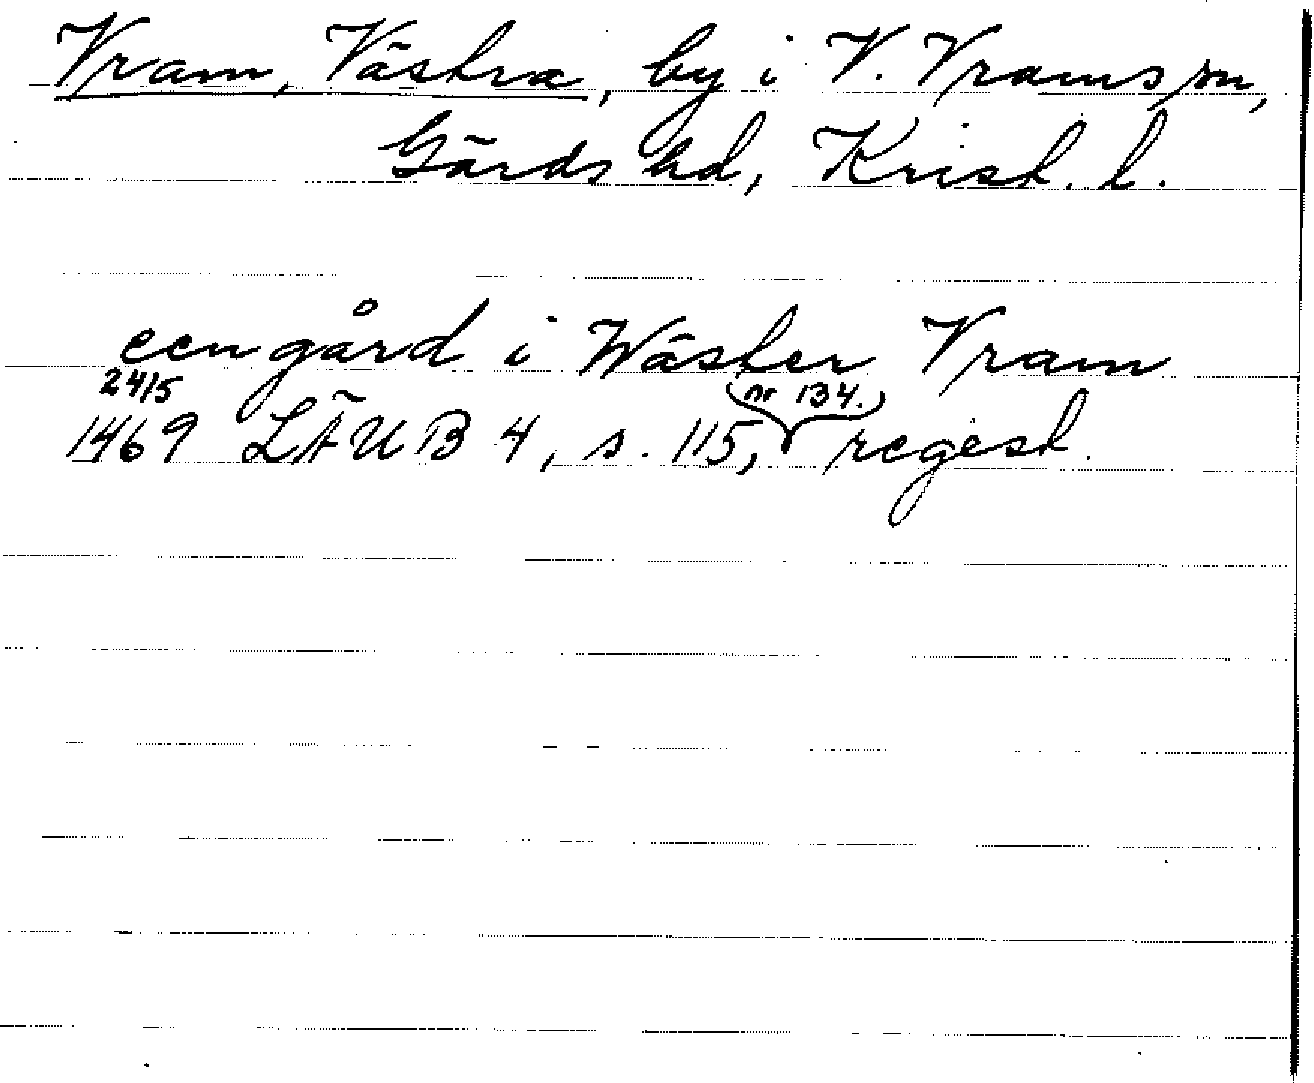 Vram, Västra, by i V. Vrams sn,
Gärds hd, Krist. l.
een gård i Wäster Vram
24/5
1469 LÄUB 4, s. 115, (nr 134.) regest.